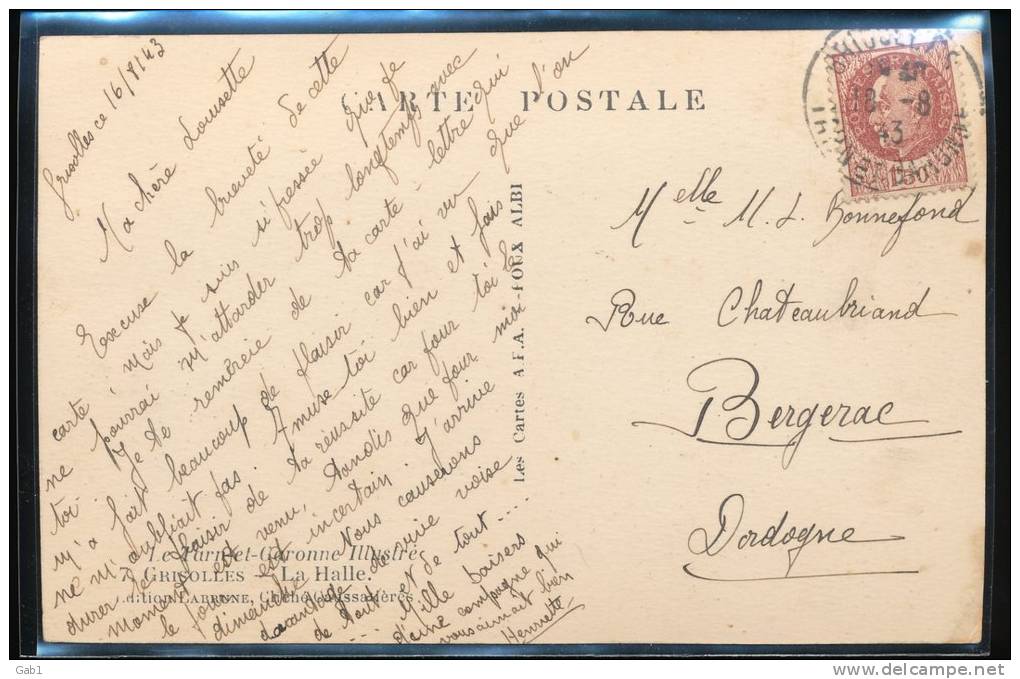 CARTE POSTALE
Grisolles ce 16/8/43
Ma chère Lousette
Excuse la brieveté de cette
carte mais je suis si pressée que je
ne pourrai m'attarder trop longtemps avec
toi. Je te remercie de ta carte lettre qui
m'a fait beaucoup de plaisir car j'ai vu que l'on
ne m'oubliait pas. Amuse toi bien et fais
durer le plaisir de ta reussite car pour toi le
moment est venu, tandis que pour moi
le jour est incertain. J'arrive
dimanche. Nous causerons
davantage de vive voix
de tout et de tout ....
.... Mille baisers
d'une compagne qui
vous aimait bien
Henriette
Melle M. L. Bonnefond
Rue Chateaubriand
Bergerac
Dordogne
Les Cartes A.F.A. POUX ALBI
Le Tarn-et-Garonne Illustré
7. GRISOLLES — La Halle.
Edition LABRUNE, Cliché
18 -8
43
1F50
Gab1